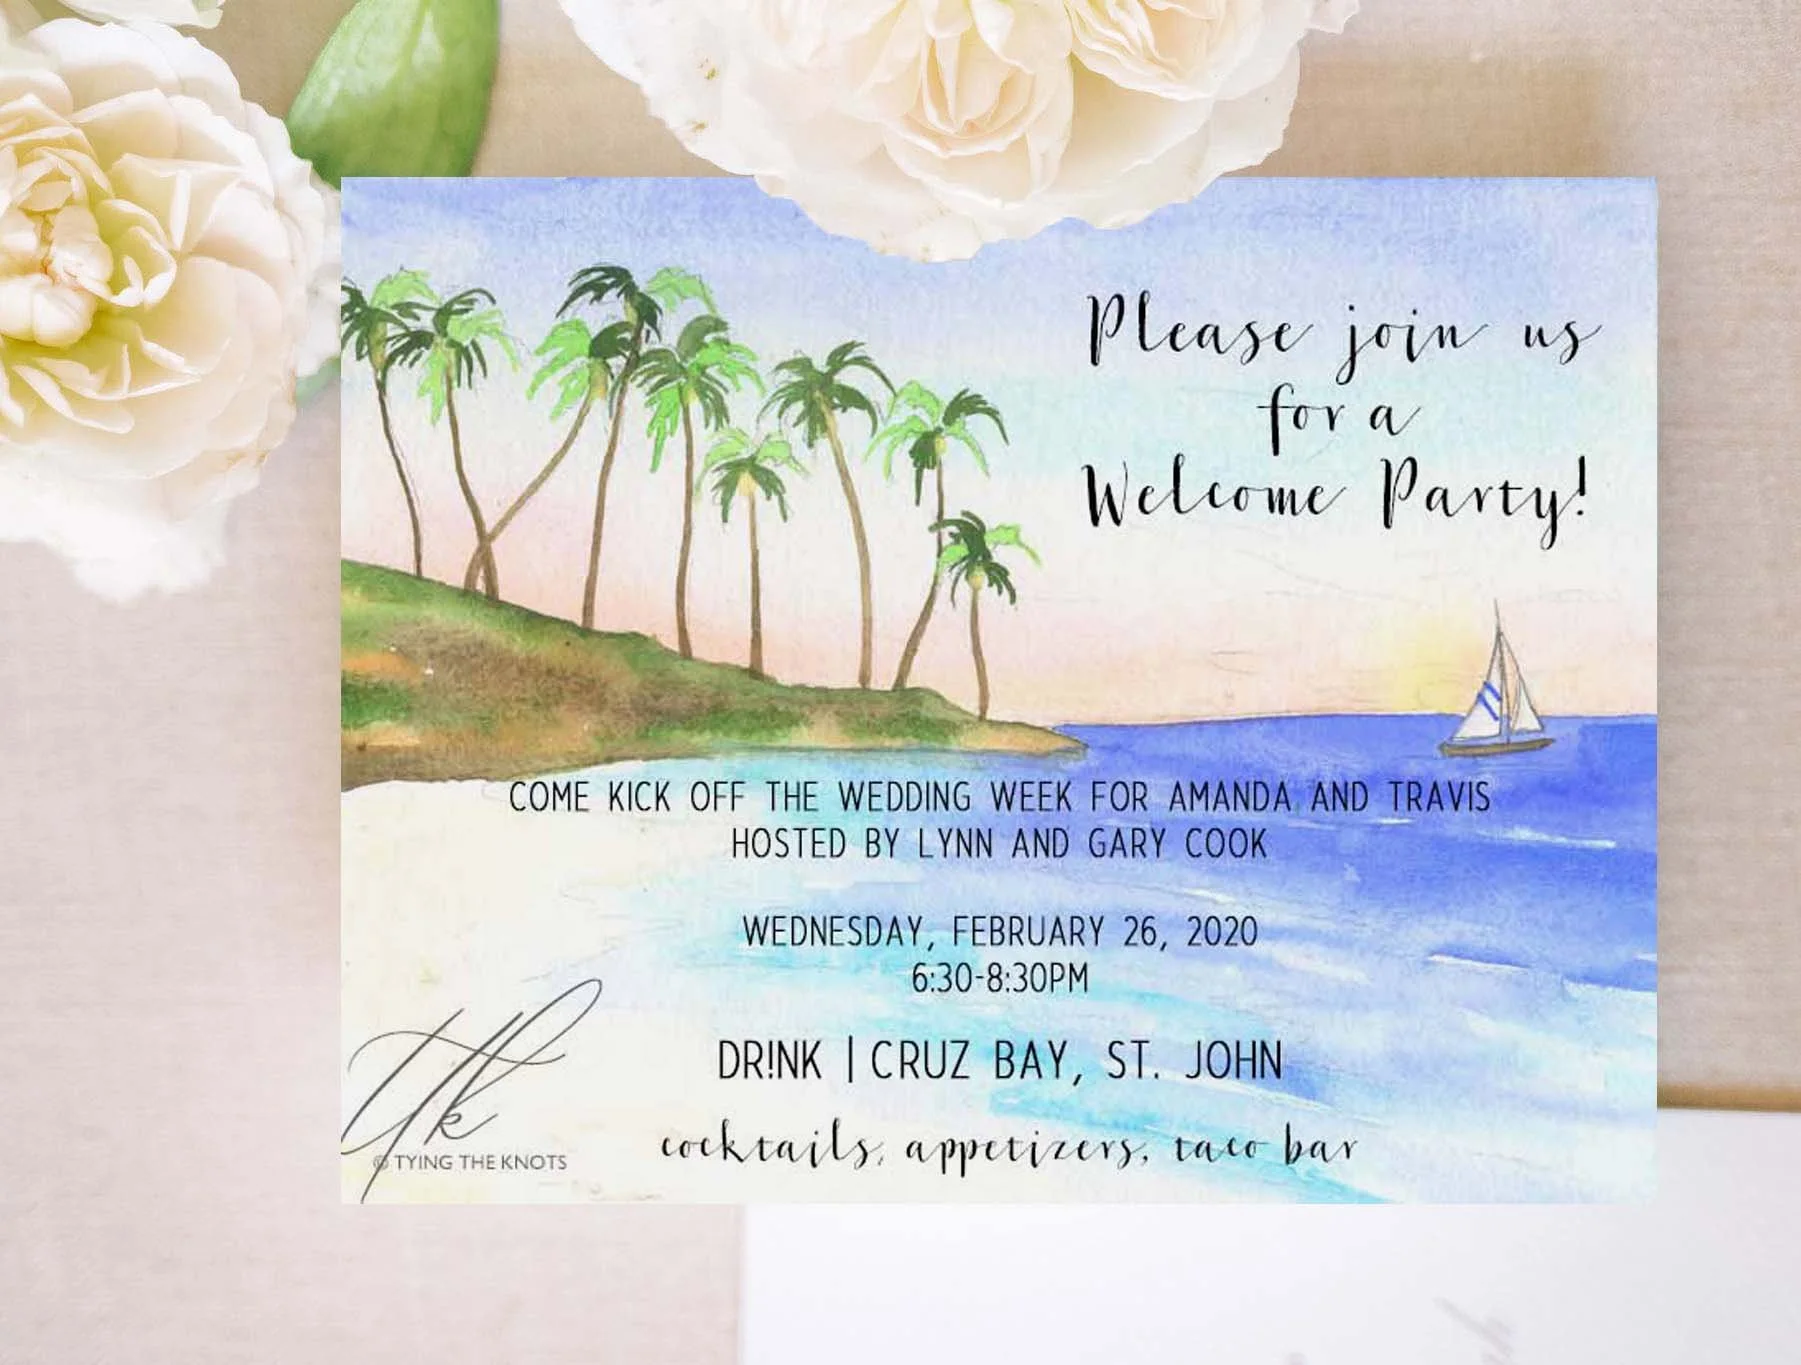 Please join us
for a
Welcome Party!
COME KICK OFF THE WEDDING WEEK FOR AMANDA AND TRAVIS
HOSTED BY LYNN AND GARY COOK
WEDNESDAY, FEBRUARY 26, 2020
6:30-8:30PM
DR!NK | CRUZ BAY, ST. JOHN
cocktails, appetizers, taco bar
tk
© TYING THE KNOTS